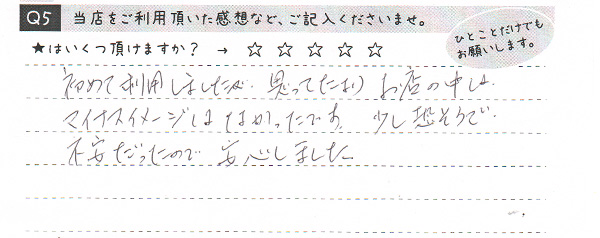 Q5 当店をご利用頂いた感想など、ご記入くださいませ。
★はいくつ頂けますか？ → ☆ ☆ ☆ ☆ ☆
ひとことだけでも
お願いします。
初めて利用しましたが、思ってたより お店の中は
マイナスイメージは なかったです。 少し恐そうで
不安だったので 安心しました